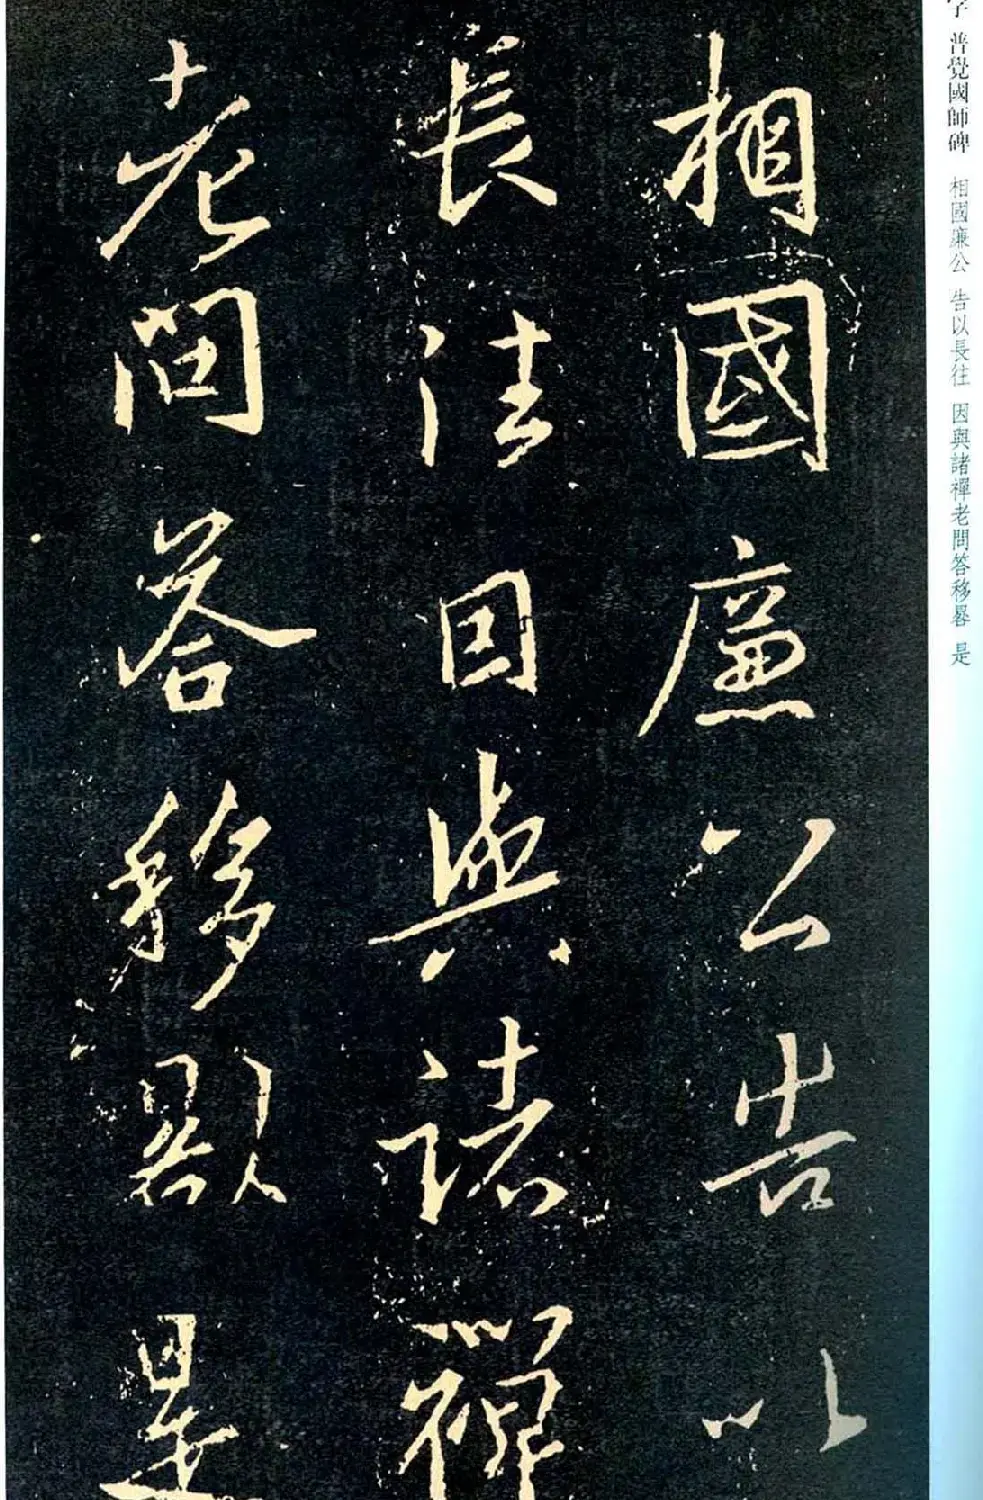 相國廉公告以
長往因與諸禪
老問答移晷是
字 普覺國師碑 相國廉公 告以長往 因與諸禪老問答移晷 是